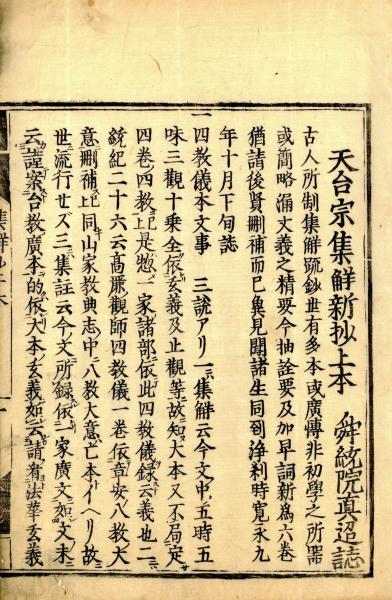 天台宗集解新抄上本
舜統院真迢誌
古人所制集解䟽鈔世有多本或廣博非初學之所器
或簡略漏文義之精要今抽詮要及加早詞新爲六卷
猶請後賢刪補而已奐見聞諸生同到淨刹時寛永九
年十月下旬誌
一四教儀本文事 三說アリ一集解云今文中五時五
味三觀十乗全依玄義及止觀等故知大本又不局定
四卷四教上是惣一家諸部依此四教儀錄云義也二
統紀二十六云高麗觀師四教儀一卷依章安八教大
意刪補上同山家教典志中八教大意亡本イヘリ故
世流行せズ三集註云今文所錄依一家廣文如文未
云謹案台教廣本的依大本玄義如云請有法華玄義
集解抄上本